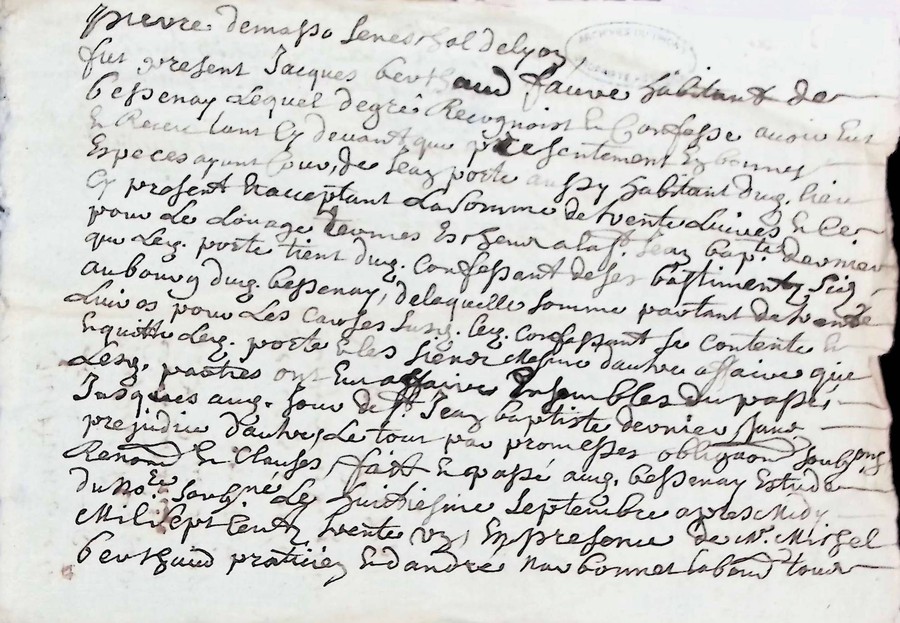 pierre demasso seneschal delyon,
fut present Jacques berthaud fauve habitant de
bessenay Lequel degré Recognoist Et Confesse avoir Eut
Et Receu tant Cy devant que presentement En bonnes
Especes ayant Cour, de Jean porte aussy habitant dug. lieu
Cy present Et acceptant La somme de trente Livres Et Ce
pour Le Louage termes Escheu a la st. Jean bapte. dernier
que Led. porte tient dug. Confessent de ses bastiments Scis
au bourg dug. bessenay, de laquelle somme partant de trente
Livres pour Les Causes Susg. leg. Confessant Se Contente Et
Equitte Leg. porte Et les siens Mesme dautre affaire que
Lesg. parties ont Eut affaire Ensembles du passé,
Jusques aug. Jour de st. Jean baptiste dernier sans
prejudice dautres Le tout par promesses obligaon soubsons
Renon Et Clauses fait Et passé aug. bessenay Estude
du nore. soigne Le huitiesme Septembre apres Midy
Mil sept Cents trente Un En presence de Mr. Michel
berthaud praticien Et dandré Narbonnet